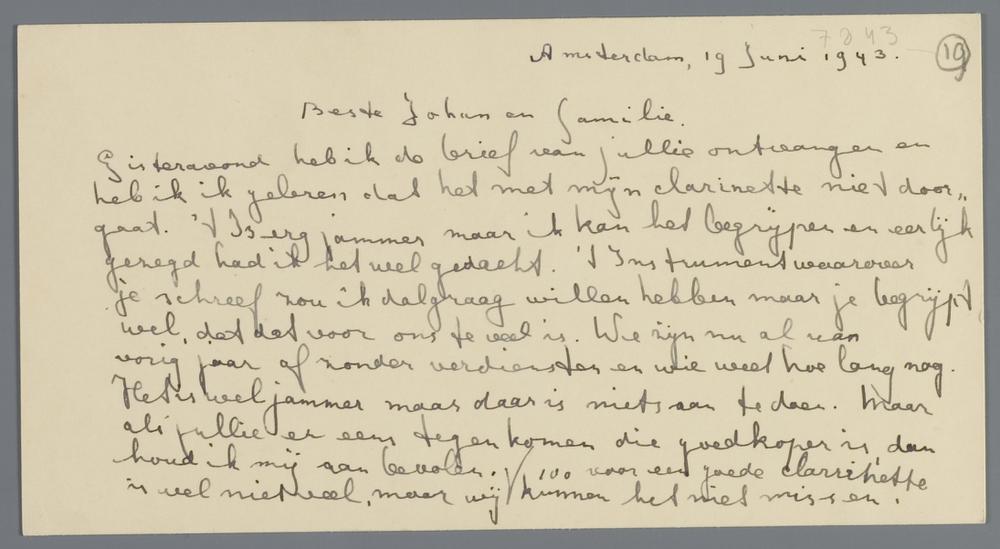 7843
Amsterdam, 19 Juni 1943. 19
Beste Johan en Familie.
Gisteravond heb ik de brief van jullie ontvangen en
heb ik ik gelezen dat het met mijn clarinette niet door„
gaat. 't Is erg jammer maar ik kan het begrijpen en eerlijk
gezegd had ik het wel gedacht. 't Instrument waarover
je schreef zou ik dalgraag willen hebben maar je begrijpt
wel, dat dat voor ons te veel is. We zijn nu al van
vorig jaar af zonder verdiensten en wie weet hoe lang nog.
Het is wel jammer maar daar is niets aan te doen. Maar
als jullie er eens tegen komen die goedkoper is, dan
houd ik mij aan bevolen. ƒ 100 voor een goede clarinette
is wel niet veel, maar wij kunnen het niet missen.